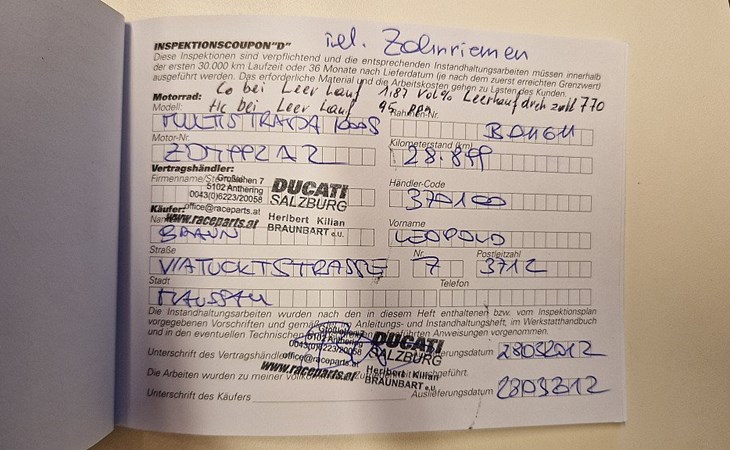 inl. Zahnriemen
INSPEKTIONSCOUPON"D"
Diese Inspektionen sind verpflichtend und die entsprechenden Instandhaltungsarbeiten müssen innerhalb
der ersten 30.000 km Laufzeit oder 36 Monate nach Lieferdatum (je nach dem zuerst erreichten Grenzwert)
ausgeführt werden. Das erforderliche Material und die Arbeitskosten gehen zu Lasten des Kunden.
Co bei Leer Lauf 1.87 Vol% Leerlauf drehzahl 770
Motorrad:
Hc bei Leer Lauf 95 ppm
Modell: Rahmen-Nr.
MULTISTRADA 1000S
Motor-Nr. Kilometerstand (km)
28.899
Vertragshändler:
Firmenname/ Händler-Code
Großlehen 7
5102 Anthering
0043(0)6223/20058
office@raceparts.at
www.raceparts.at
DUCATI
SALZBURG
Heribert Kilian
BRAUNBART e.U.
370100
Käufer: Vorname
BRAUN LEOPOLD
Straße Nr. Postleitzahl
7 3712
Stadt Telefon
Die Instandhaltungsarbeiten wurden nach den in diesem Heft enthaltenen bzw. vom Inspektionsplan
vorgegebenen Vorschriften und gemäß Anleitungs- und Instandhaltungsheft, im Werkstatthandbuch
und in den eventuellen Technischen aufgeführten Anweisungen vorgenommen.
5102 Anthering
0043(0)6223/20058
office@raceparts.at
www.raceparts.at
DUCATI
SALZBURG
Heribert Kilian
BRAUNBART e.U.
Unterschrift des Vertragshändlers Auslieferungsdatum 28032012
Die Arbeiten wurden zu meiner durchgeführt.
Unterschrift des Käufers Auslieferungsdatum 28032012